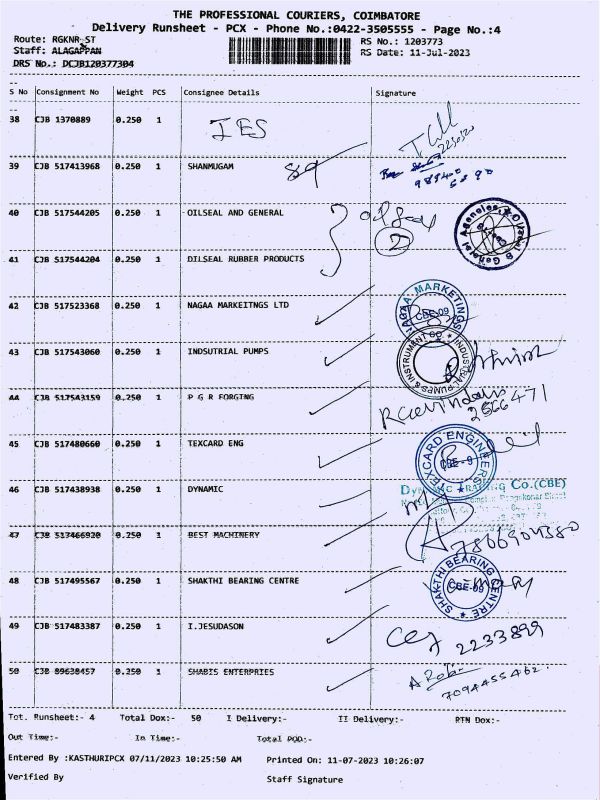 THE PROFESSIONAL COURIERS, COIMBATORE
Delivery Runsheet - PCX - Phone No.:0422-3505555 - Page No.:4
Route: RGKNR_ST
RS No.: 1203773
Staff: ALAGAPPAN
RS Date: 11-Jul-2023
DRS No.: DCJB120377304
S No Consignment No Weight PCS Consignee Details Signature
38 CJB 1370889 0.250 1 IES
39 CJB 517413968 0.250 1 SHANMUGAM 89
40 CJB 517544205 0.250 1 OILSEAL AND GENERAL
2
41 CJB 517544204 0.250 1 OILSEAL RUBBER PRODUCTS
42 CJB 517523368 0.250 1 NAGAA MARKEITNGS LTD NAGAA MARKETINGS CBE-09
43 CJB 517543060 0.250 1 INDSUTRIAL PUMPS INDUSTRIAL PUMPS & INSTRUMENT CO
44 CJB 517543159 0.250 1 P G R FORGING
2566471
45 CJB 517480660 0.250 1 TEXCARD ENG TEXCARD ENGINEERS CBE - 9
46 CJB 517438938 0.250 1 DYNAMIC Co.(CBE)
47 CJB 513466920 0.250 1 BEST MACHINERY
48 CJB 517495567 0.250 1 SHAKTHI BEARING CENTRE SHAKTHI BEARING CENTRE CBE-09
49 CJB 517483387 0.250 1 I.JESUDASON
2233899
50 CJB 89638457 0.250 1 SHABIS ENTERPRIES
7094455462
Tot. Runsheet:- 4 Total Dox:- 50 I Delivery:- II Delivery:- RTN Dox:-
Out Time:- In Time:- Total POD:-
Entered By :KASTHURIPCX 07/11/2023 10:25:50 AM Printed On: 11-07-2023 10:26:07
Verified By Staff Signature